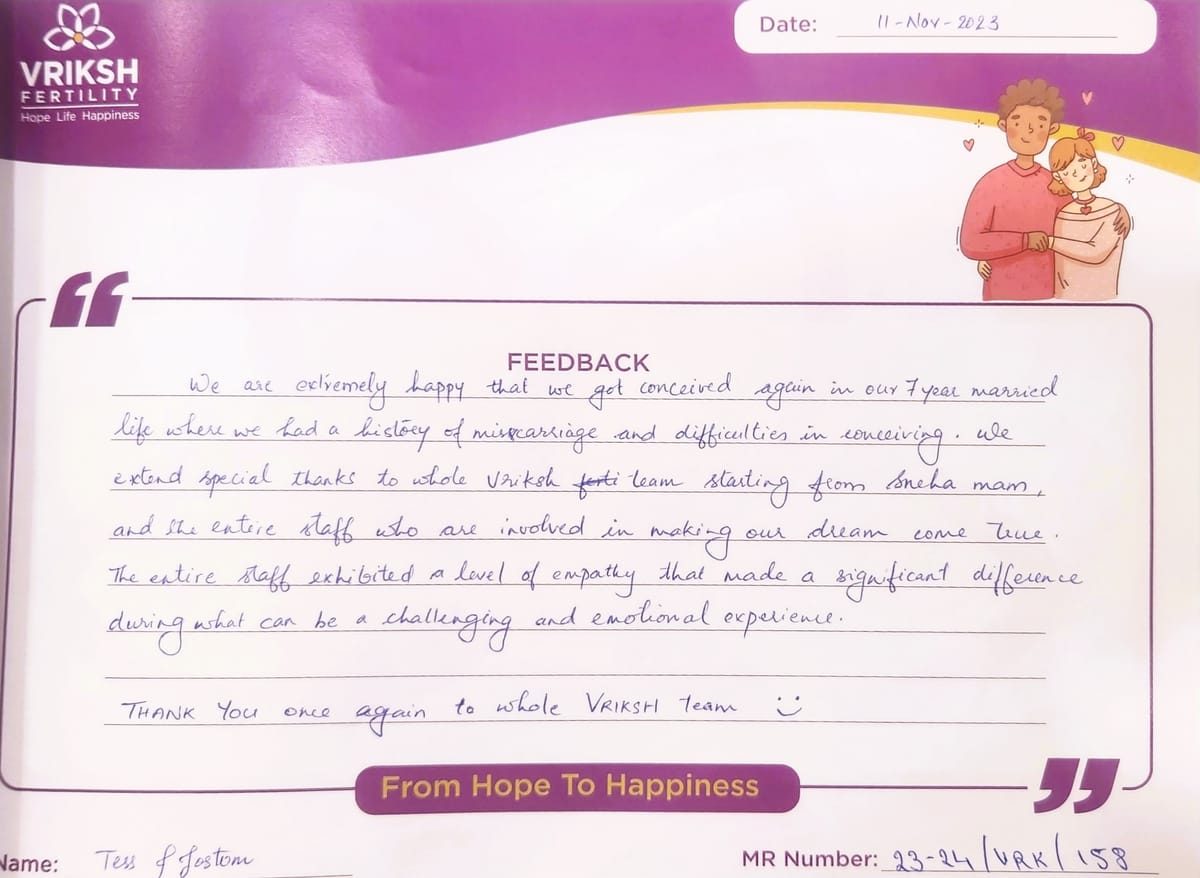 VRIKSH
FERTILITY
Hope Life Happiness
Date: 11-Nov-2023
FEEDBACK
We are extremely happy that we got conceived again in our 7 year married
life where we had a history of misscarriage and difficulties in conceiving. We
extend special thanks to whole Vriksh ferti team starting from Sneha mam,
and the entire staff who are involved in making our dream come true.
The entire staff exhibited a level of empathy that made a significant difference
during what can be a challenging and emotional experience.
THANK YOU once again to whole VRIKSH Team :)
From Hope To Happiness
Name: Tess & Jostom
MR Number: 23-24/VRK/158